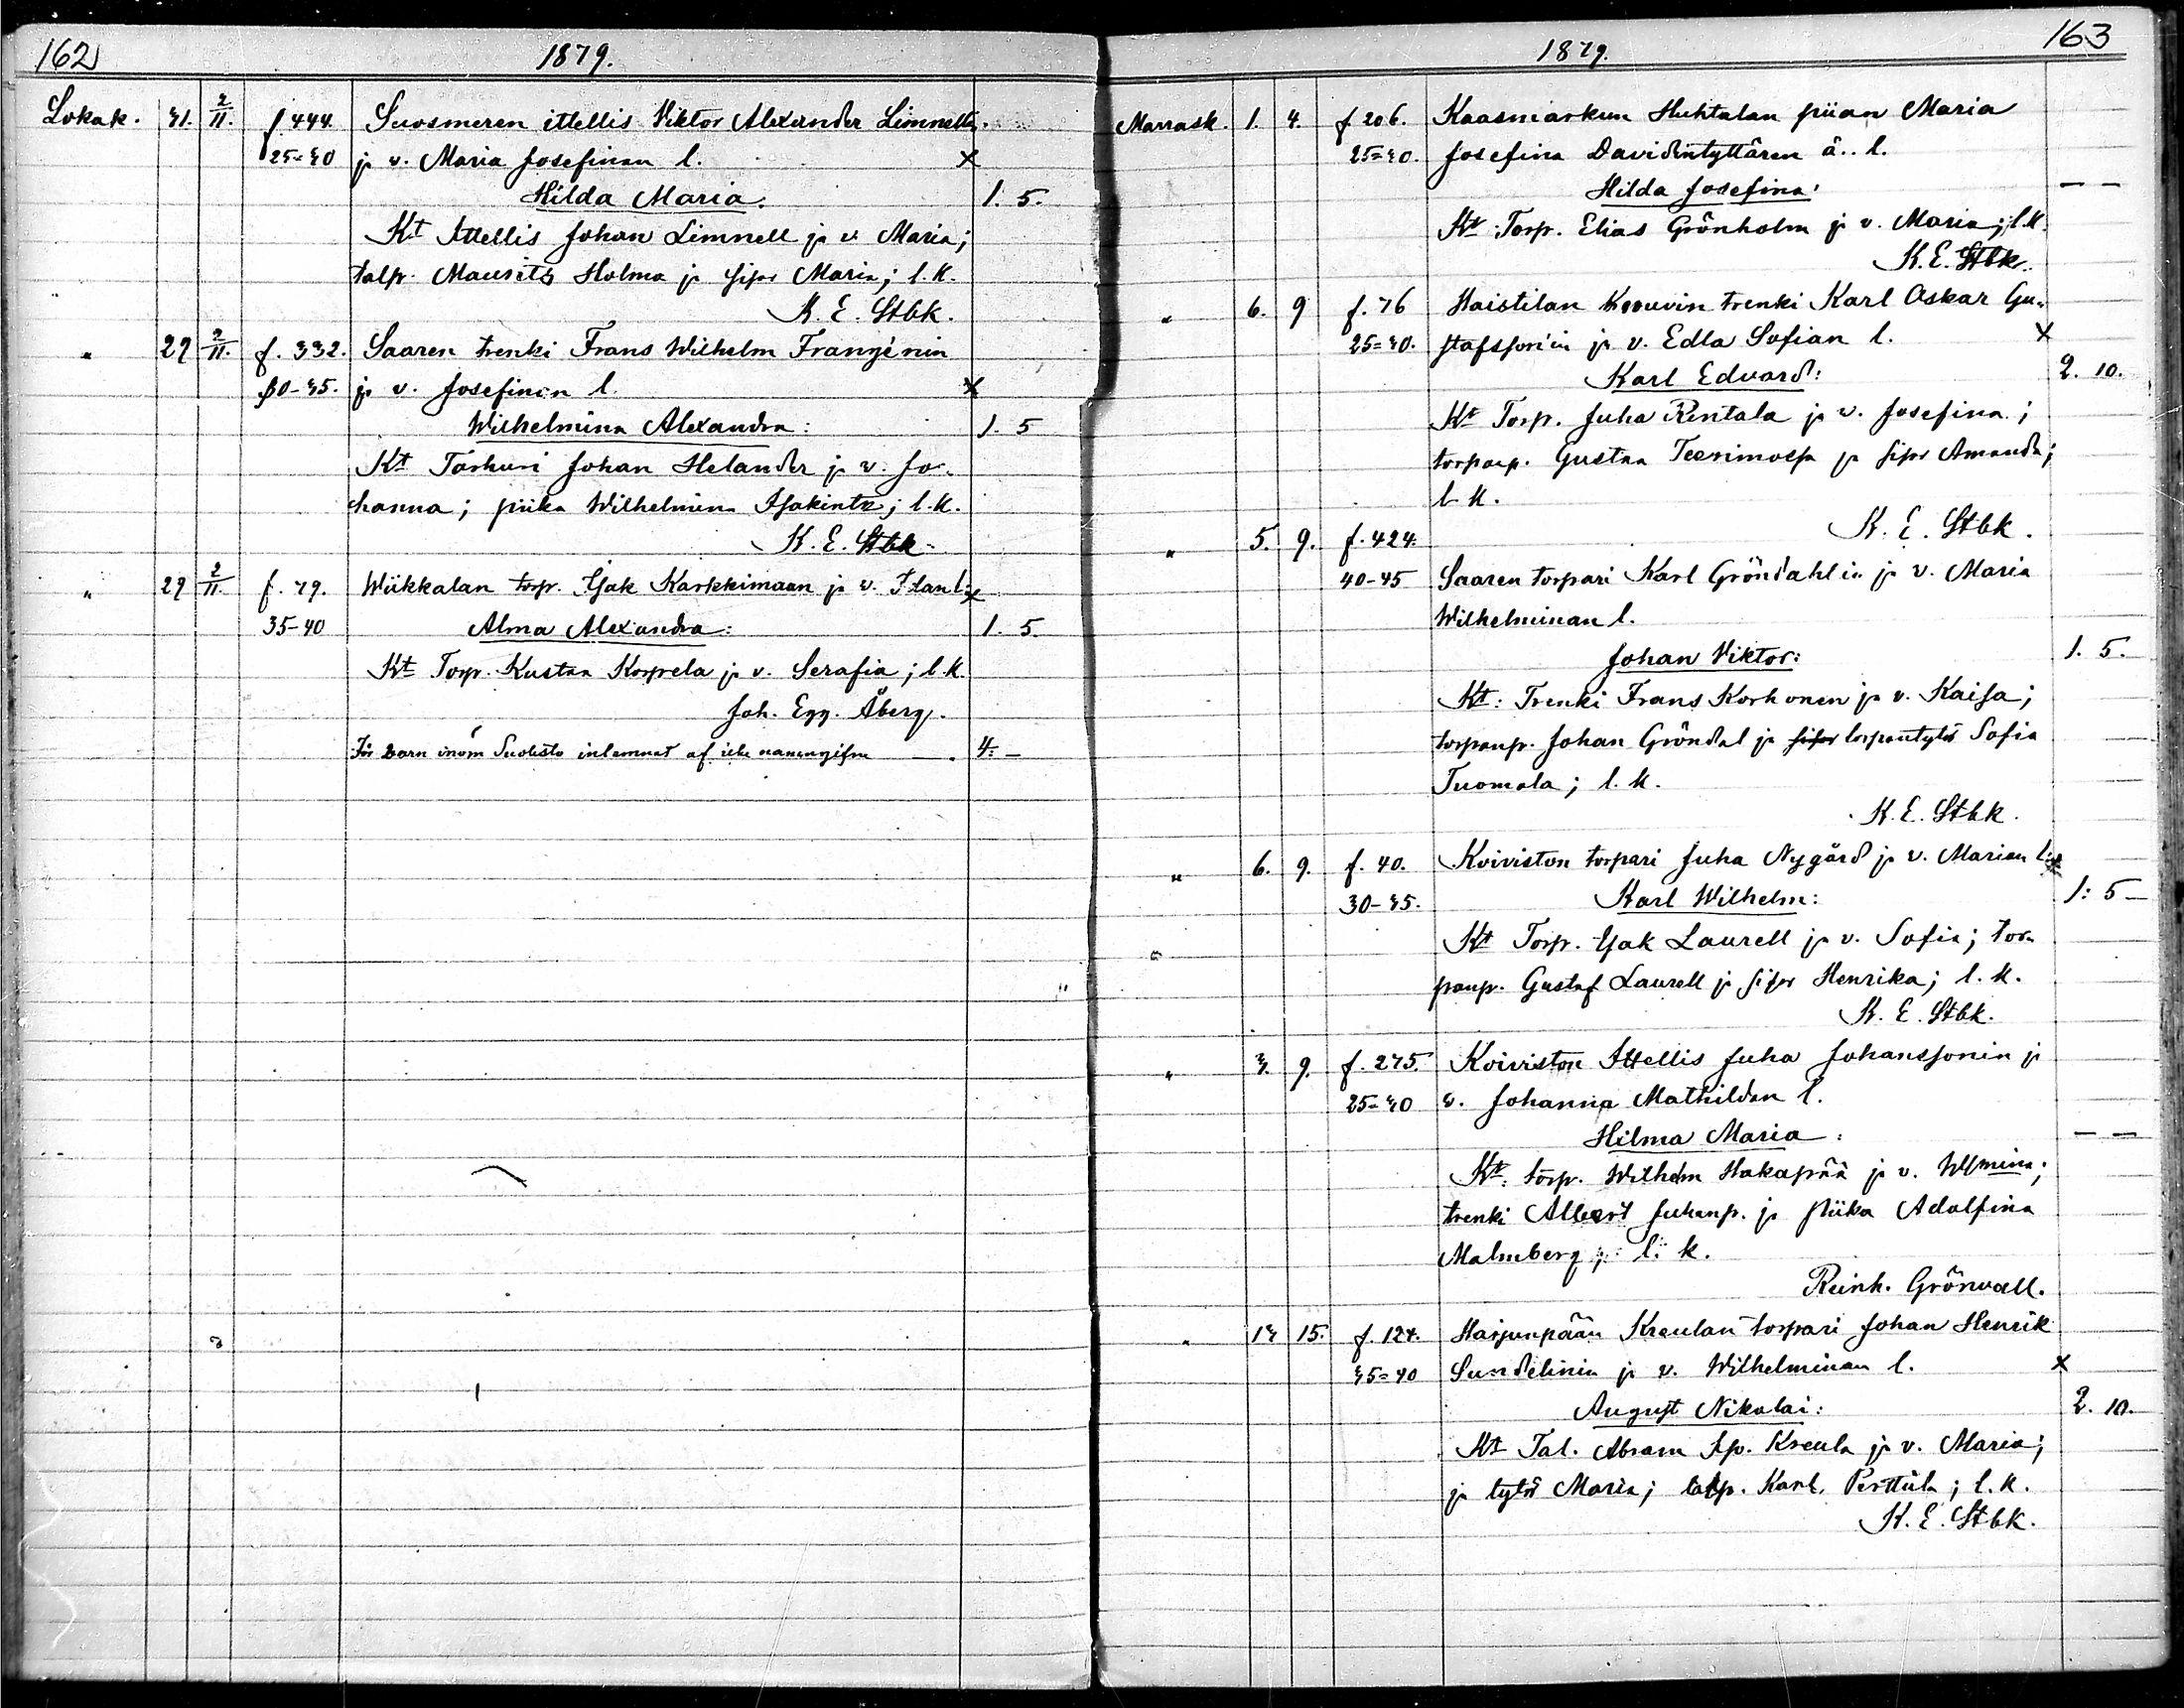 162 1879.
Lokak. 31. 2/11. f 444. Suosmeren ittellis Viktor Alexander Limnellin
25-30 ja v. Maria Josefinan l. x
Hilda Maria. 1. 5.
Kt Ittellis Johan Limnell ja v. Maria;
talp. Maurits Holma ja sisar Maria; l. k.
K. E. Stbk.
" 29 2/11. f. 332. Saaren trenki Frans Wilhelm Frangénin
30-35. ja v. Josefinan l. x
Wilhelmina Alexandra: 1. 5
Kt Torhuri Johan Helander ja v. Jo-
hanna; piika Wilhelmina Isakintr; l. k.
K. E. Stbk.
" 29 2/11. f. 79. Wiikkalan torp. Isak Karkkimaan ja v. l: x
35-40 Alma Alexandra: 1. 5.
Kt Torp. Kustaa Korpela ja v. Serafia; l. k.
Joh. Egg. Åberg.
För barn inom Suolisto inlemnat af icke namngifne —. 4: —
1879. 163
Marrask. 1. 4. f. 206. Kaasmarkun Huhtalan piian Maria
25-30. Josefina Davidintyttären ä.. l.
Hilda Josefina: — —
Kt Torp. Elias Grönholm ja v. Maria; l. k.
K. E. Stbk.
" 6. 9 f. 76 Haistilan Krouvin trenki Karl Oskar Gu-
25-30. stafssonin ja v. Edla Sofian l. x
Karl Edvard: 2. 10.
Kt Torp. Juha Rentala ja v. Josefina;
torpanp. Gustaa Teerimossa ja sisar Amanda;
l. k.
K. E. Stbk.
" 5. 9. f. 424.
40-45 Saaren torpari Karl Gröndahlin ja v. Maria
Wilhelminan l.
Johan Viktor: 1. 5.
Kt: Trenki Frans Korhonen ja v. Kaisa;
torpanp. Johan Gröndal ja sisar torpantytär Sofia
Tuomola; l. k.
K. E. Stbk.
" 6. 9. f. 40. Koiviston torpari Juha Nygård ja v. Marian l: x
30-35. Karl Wilhelm: 1: 5 —
Kt Torp. Isak Laurell ja v. Sofia; tor-
panp. Gustaf Laurell ja sisar Henrika; l. k.
K. E. Stbk.
" 3. 9. f. 275. Koiviston Ittellis Juha Johanssonin ja
25-30 v. Johanna Mathildan l.
Hilma Maria: — —
Kt: torp. Wilhelm Hakapää ja v. Wlmina;
trenki Albert Juhanp. ja piika Adolfina
Malmberg; l: k.
Reinh. Grönvall.
" 13 15. f. 124. Harjunpään Kreulan torpari Johan Henrik
35-40 Sundelinin ja v. Wilhelminan l. x
August Nikolai: 2. 10.
Kt Tal. Abram Kreula ja v. Maria;
ja tytär Maria; talp. Karl. Perttula; l. k.
K. E. Stbk.